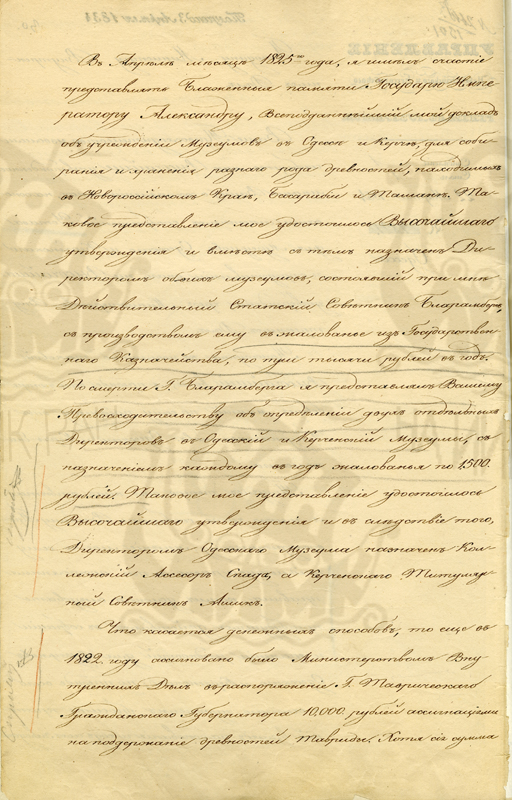 Въ Апрѣлѣ мѣсяцѣ 1825го года, я имѣлъ счастіе
представлять Блаженныя памяти Государю Импе-
ратору Александру, Всеподданнѣйшій мой докладъ
объ учрежденіи Музеумовъ въ Одессѣ и Керчи, для соби-
ранія и храненія разнаго рода древностей, находимыхъ
въ Новороссійскомъ Краѣ, Басарабіи и Тамани. Та-
ковое представленіе мое удостоилось Высочайшаго
утвержденія и вмѣстѣ съ тѣмъ назначенъ Ди-
ректоромъ обоихъ музеумовъ, состоявшій при мнѣ
Дѣйствительный Статскій Совѣтникъ Бларамбергъ,
съ производствомъ ему въ жалованье изъ Государствен-
наго Казначейства, по три тысячи рублей въ годъ.
По смерти Г. Бларамберга я представлялъ Вашему
Превосходительству объ опредѣленіи двухъ отдѣльныхъ
Директоровъ въ Одесскій и Керченскій Музеумы, съ
назначеніемъ каждому въ годъ жалованья по 1500.
рублей. Таковое мое представленіе удостоилось
Высочайшаго утвержденія и въ слѣдствіе того,
Директоромъ Одесскаго Музеума назначенъ Кол-
лежскій Ассесоръ Спада, а Керченскаго Титуляр-
ный Совѣтникъ Ашикъ.
Что касается денежныхъ способовъ, то еще въ
1822. году ассигновано было Министерствомъ Вну
треннихъ Дѣлъ въ распоряженіе Г. Таврическаго
Гражданскаго Губернатора 10,000. рублей ассигнаціями
на поддержаніе древностей Тавриды. Хотя сія сумма